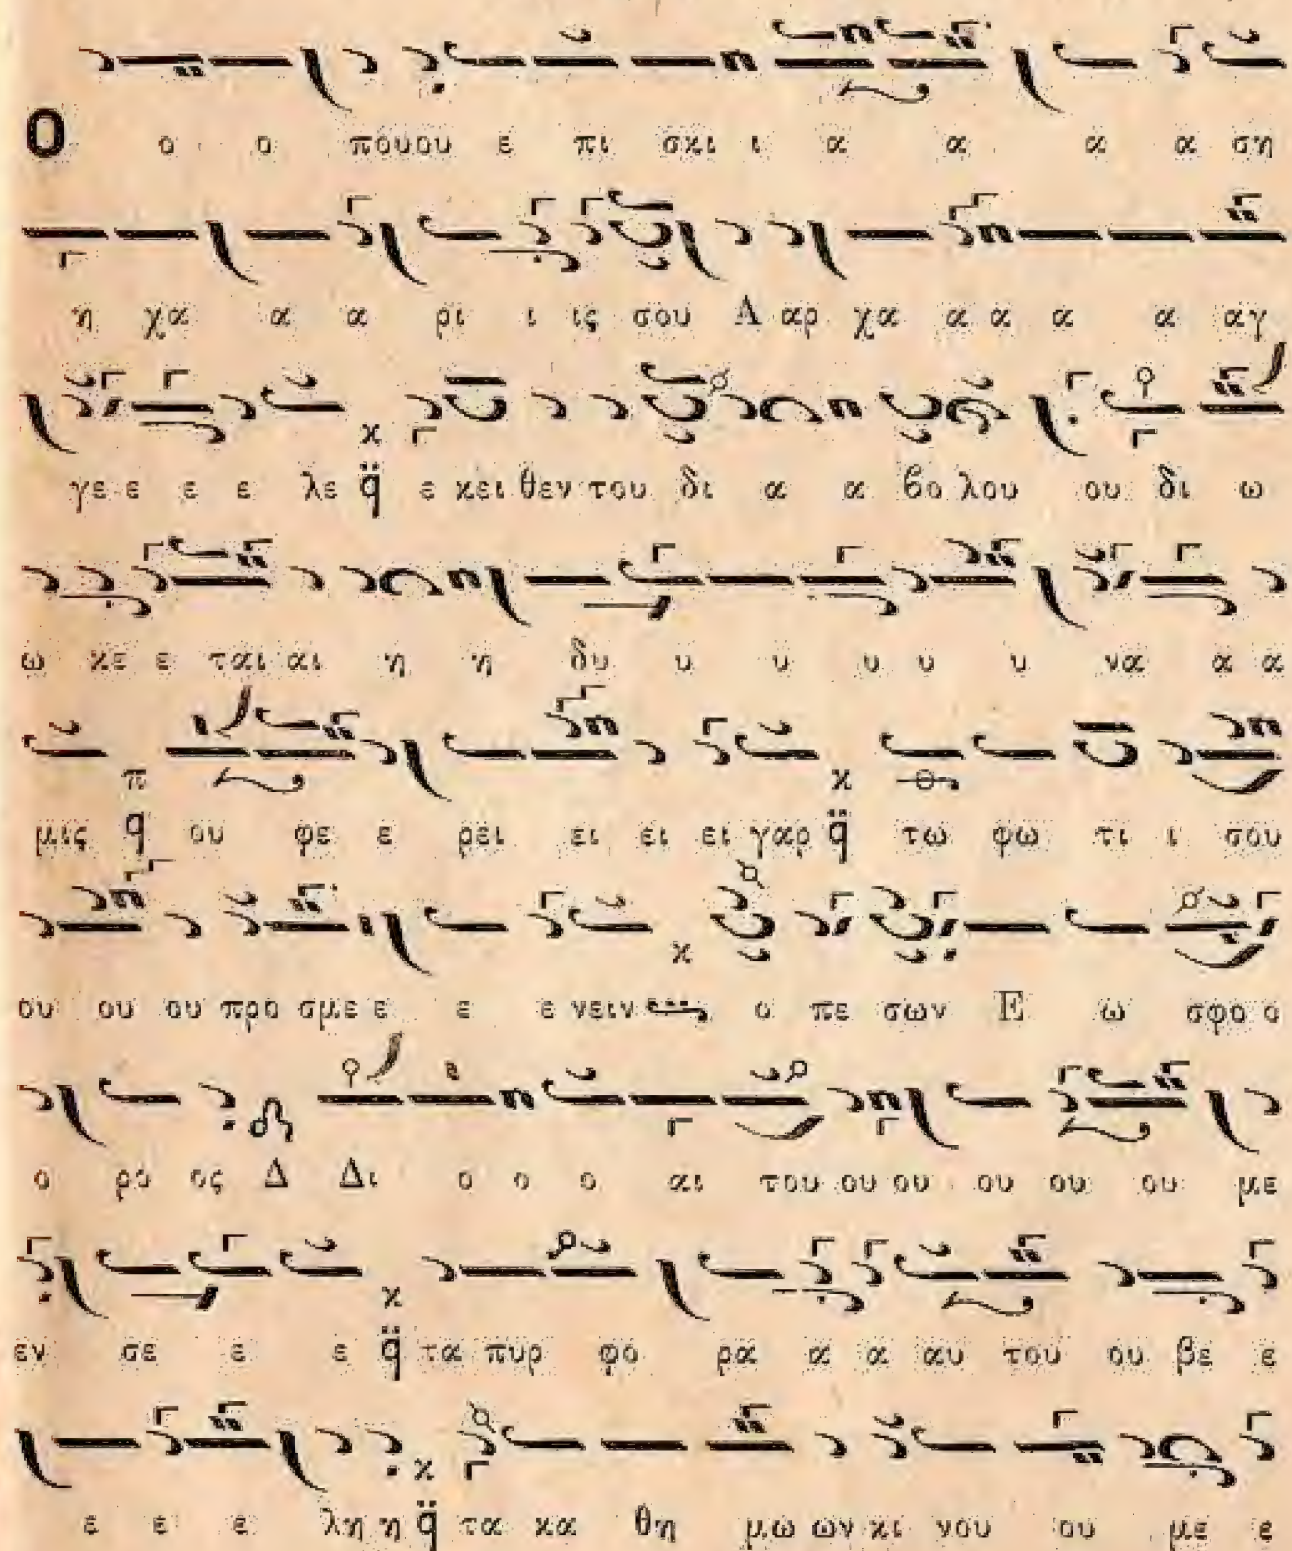 Ο ο ο πουου ε πι σκι ι α α α α ση
η χα α α ρι ι ις σου Α αρ χα α α α α αγ
γε ε ε ε λε q̈ ε κει θεν του δι α α βο λου ου δι ω
ω κε ε ται αι η η δυ υ υ υ υ υ να α α
π κ
μις q ου φε ε ρει ει ει ει γαρ q̈ τω φω τι ι σου
ου ου ου προ σμε ε ε ε νειν ο πε σων Ε ω σφο ο
ο ρο ος Δ Δι ο ο ο αι του ου ου ου ου ου με
εν σε ε ε q̈ τα πυρ φο ρα α α αυ του ου βε ε
ε ε ε λη η q̈ τα κα θη μω ων κι νου ου με ε